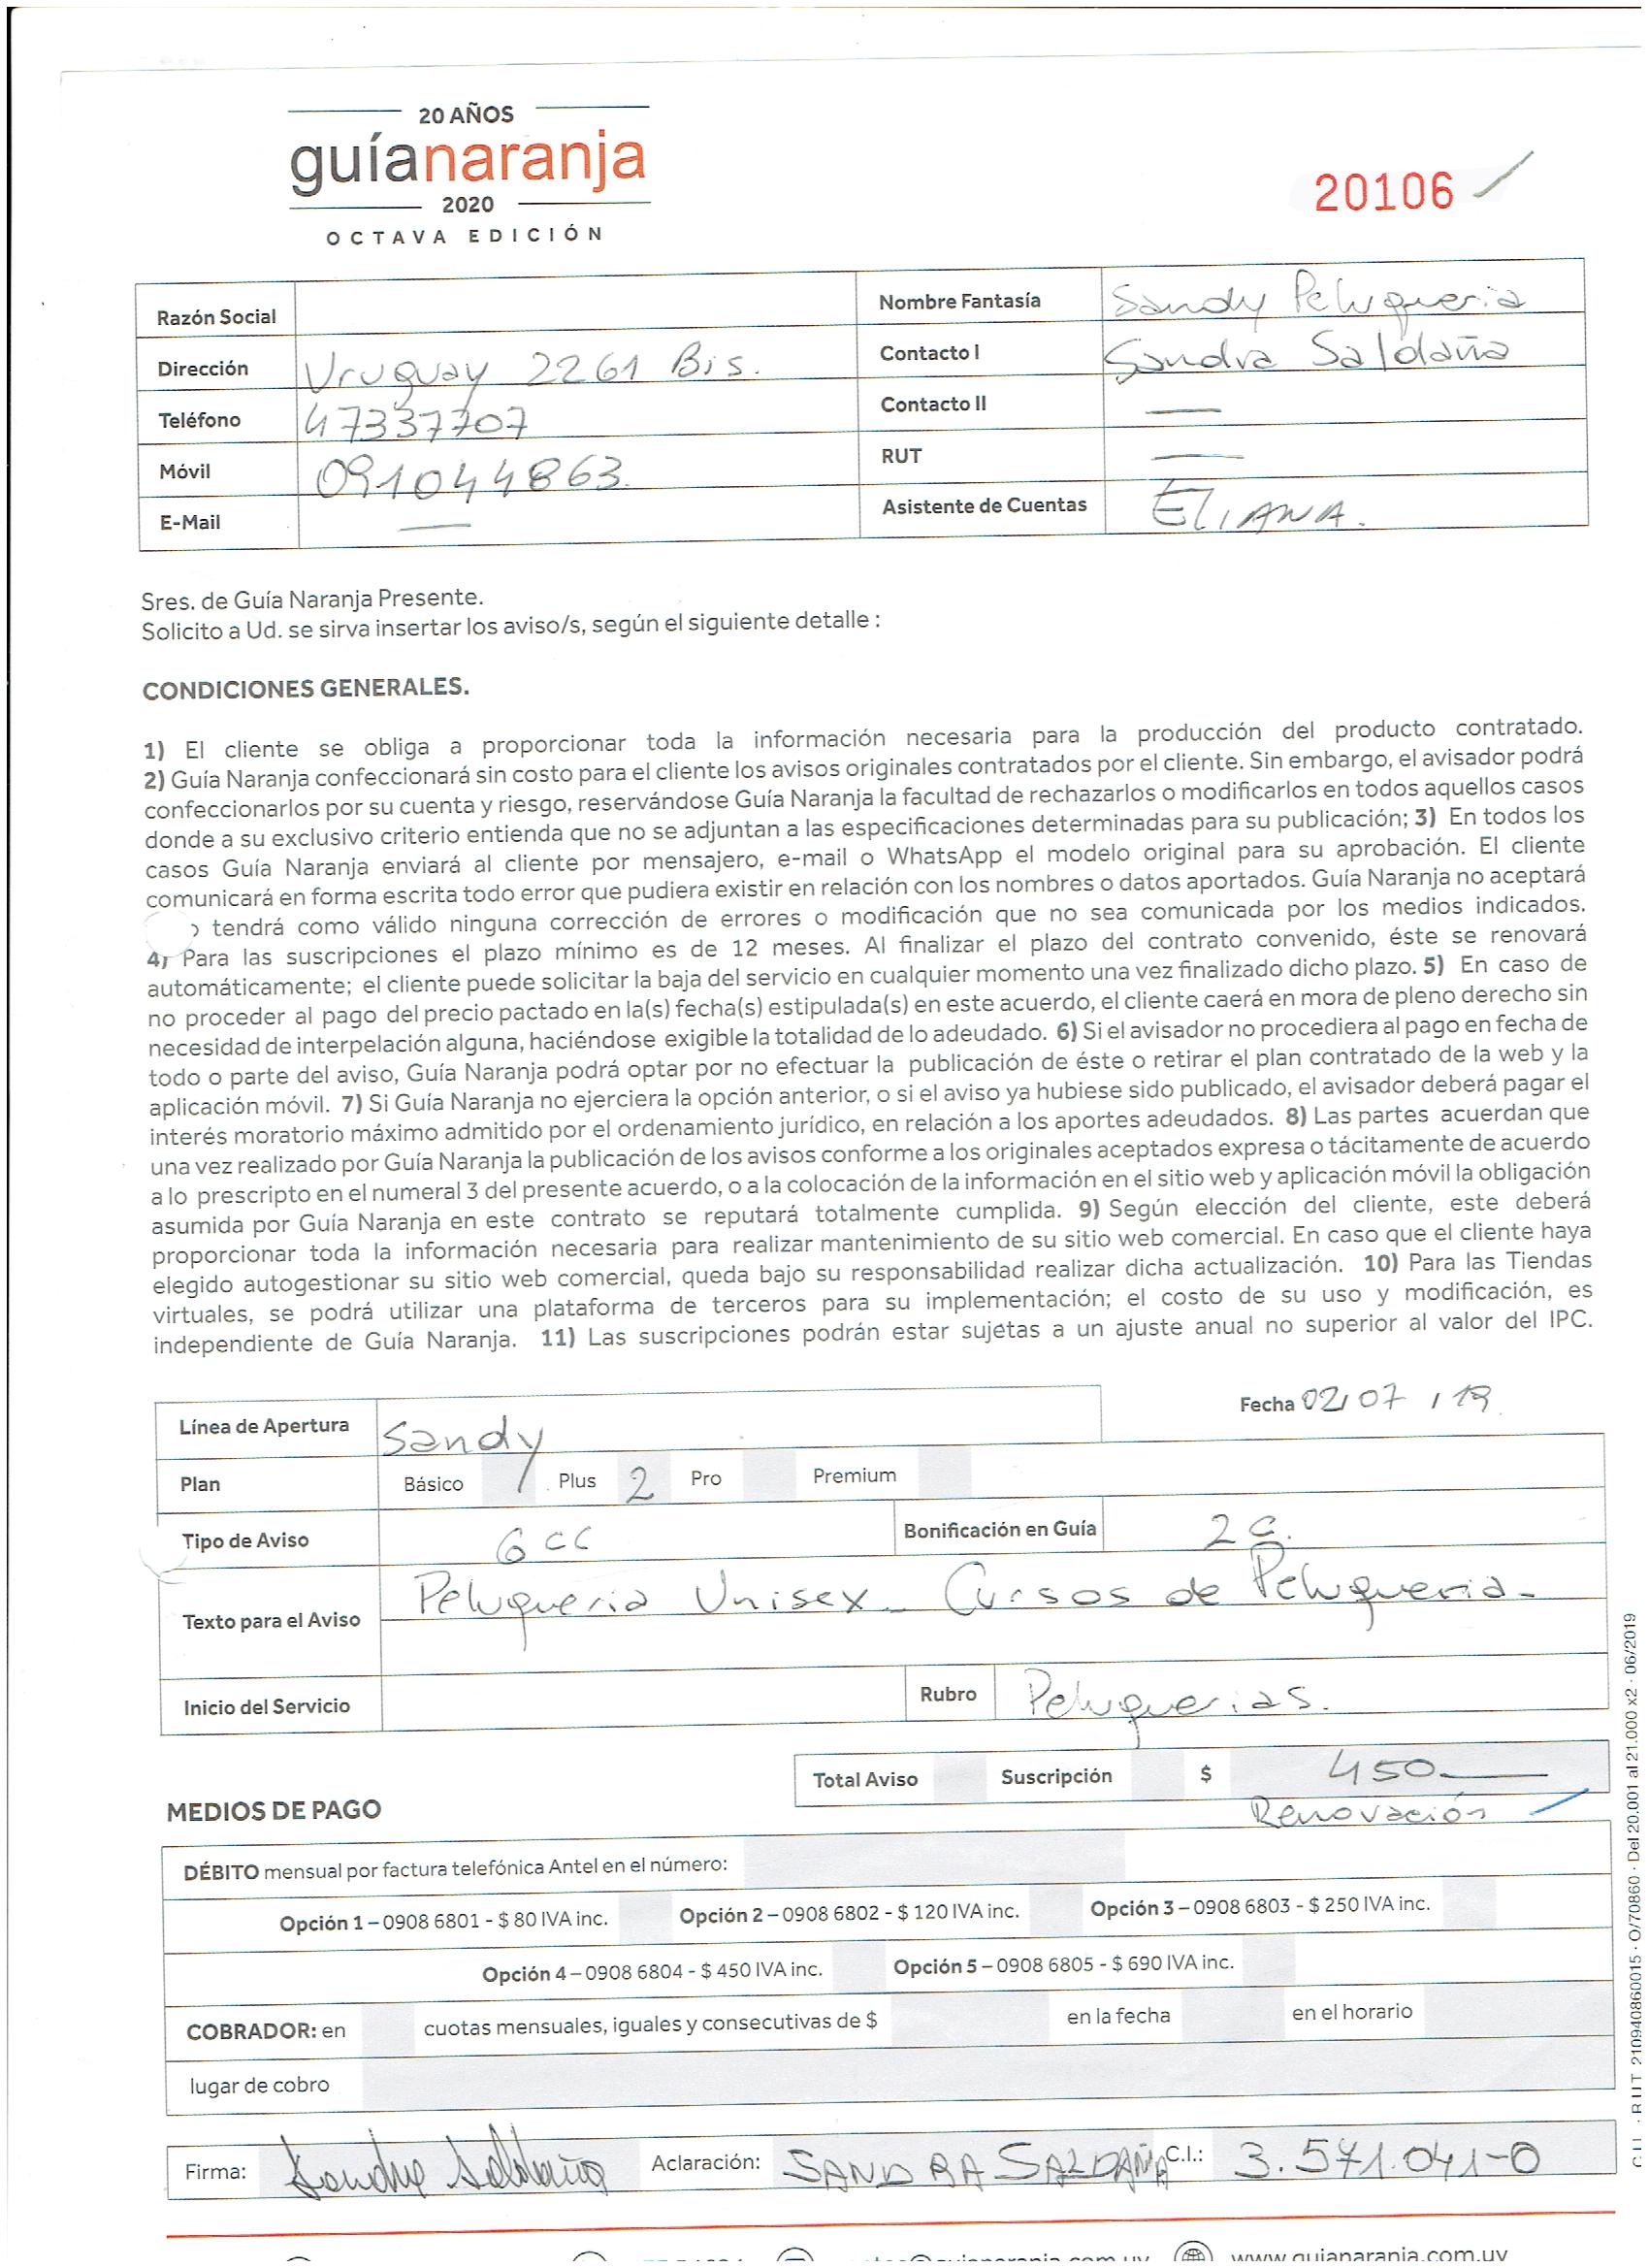 20 AÑOS
guíanaranja
2020
OCTAVA EDICIÓN
20106
Razón Social
Nombre Fantasía Sandy Peluqueria
Dirección Uruguay 2261 Bis.
Contacto I Sandra Saldaña
Teléfono 47337707
Contacto II —
Móvil 091044863
RUT —
E-Mail —
Asistente de Cuentas ELIANA.
Sres. de Guía Naranja Presente.
Solicito a Ud. se sirva insertar los aviso/s, según el siguiente detalle :
CONDICIONES GENERALES.
1) El cliente se obliga a proporcionar toda la información necesaria para la producción del producto contratado.
2) Guía Naranja confeccionará sin costo para el cliente los avisos originales contratados por el cliente. Sin embargo, el avisador podrá
confeccionarlos por su cuenta y riesgo, reservándose Guía Naranja la facultad de rechazarlos o modificarlos en todos aquellos casos
donde a su exclusivo criterio entienda que no se adjuntan a las especificaciones determinadas para su publicación; 3) En todos los
casos Guía Naranja enviará al cliente por mensajero, e-mail o WhatsApp el modelo original para su aprobación. El cliente
comunicará en forma escrita todo error que pudiera existir en relación con los nombres o datos aportados. Guía Naranja no aceptará
tendrá como válido ninguna corrección de errores o modificación que no sea comunicada por los medios indicados.
4) Para las suscripciones el plazo mínimo es de 12 meses. Al finalizar el plazo del contrato convenido, éste se renovará
automáticamente; el cliente puede solicitar la baja del servicio en cualquier momento una vez finalizado dicho plazo. 5) En caso de
no proceder al pago del precio pactado en la(s) fecha(s) estipulada(s) en este acuerdo, el cliente caerá en mora de pleno derecho sin
necesidad de interpelación alguna, haciéndose exigible la totalidad de lo adeudado. 6) Si el avisador no procediera al pago en fecha de
todo o parte del aviso, Guía Naranja podrá optar por no efectuar la publicación de éste o retirar el plan contratado de la web y la
aplicación móvil. 7) Si Guía Naranja no ejerciera la opción anterior, o si el aviso ya hubiese sido publicado, el avisador deberá pagar el
interés moratorio máximo admitido por el ordenamiento jurídico, en relación a los aportes adeudados. 8) Las partes acuerdan que
una vez realizado por Guía Naranja la publicación de los avisos conforme a los originales aceptados expresa o tácitamente de acuerdo
a lo prescripto en el numeral 3 del presente acuerdo, o a la colocación de la información en el sitio web y aplicación móvil la obligación
asumida por Guía Naranja en este contrato se reputará totalmente cumplida. 9) Según elección del cliente, este deberá
proporcionar toda la información necesaria para realizar mantenimiento de su sitio web comercial. En caso que el cliente haya
elegido autogestionar su sitio web comercial, queda bajo su responsabilidad realizar dicha actualización. 10) Para las Tiendas
virtuales, se podrá utilizar una plataforma de terceros para su implementación; el costo de su uso y modificación, es
independiente de Guía Naranja. 11) Las suscripciones podrán estar sujetas a un ajuste anual no superior al valor del IPC.
Fecha 02/07/19
Línea de Apertura Sandy
Plan Básico Plus 2 Pro Premium
Tipo de Aviso 6cc Bonificación en Guía 2c.
Texto para el Aviso Peluqueria Unisex - Cursos de Peluqueria -
Inicio del Servicio Rubro Peluquerias.
Total Aviso Suscripción $ 450
Renovación
MEDIOS DE PAGO
DÉBITO mensual por factura telefónica Antel en el número:
Opción 1 – 0908 6801 - $ 80 IVA inc. Opción 2 – 0908 6802 - $ 120 IVA inc. Opción 3 – 0908 6803 - $ 250 IVA inc.
Opción 4 – 0908 6804 - $ 450 IVA inc. Opción 5 – 0908 6805 - $ 690 IVA inc.
COBRADOR: en cuotas mensuales, iguales y consecutivas de $ en la fecha en el horario
lugar de cobro
Firma: Sandra Saldaña Aclaración: SANDRA SALDAÑA C.I.: 3.571.041-0
www.guianaranja.com.uy
RUT 210940860015 · O/70860 · Del 20.001 al 21.000 x2 · 06/2019